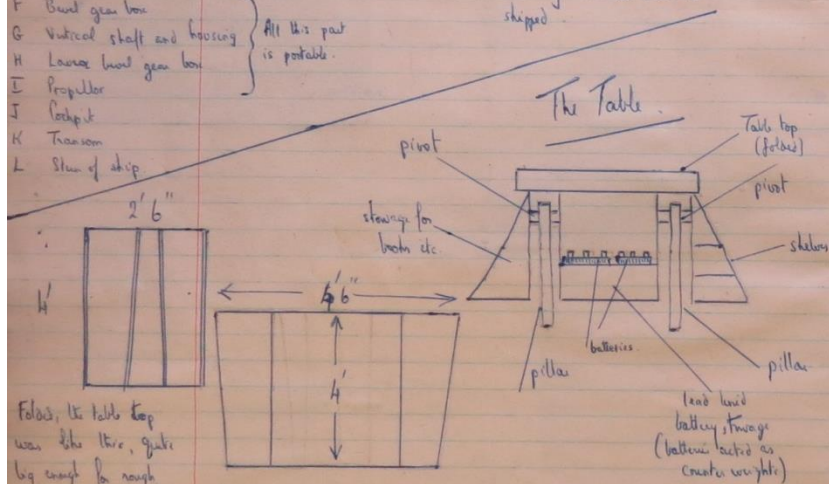 F Bevel gear box
G Vertical shaft and housing
H Lower bevel gear box
I Propellor
J Cockpit
K Transom
L Stern of ship
All this part
is portable.
shipped.
The Table.
Table top
(folded)
pivot
pivot
stowage for
books etc.
shelves
batteries
pillar
pillar
lead lined
battery stowage
(batteries acted as
counter weights)
2' 6"
4'
6"
4'
Folded, the table top
was like this, quite
big enough for rough